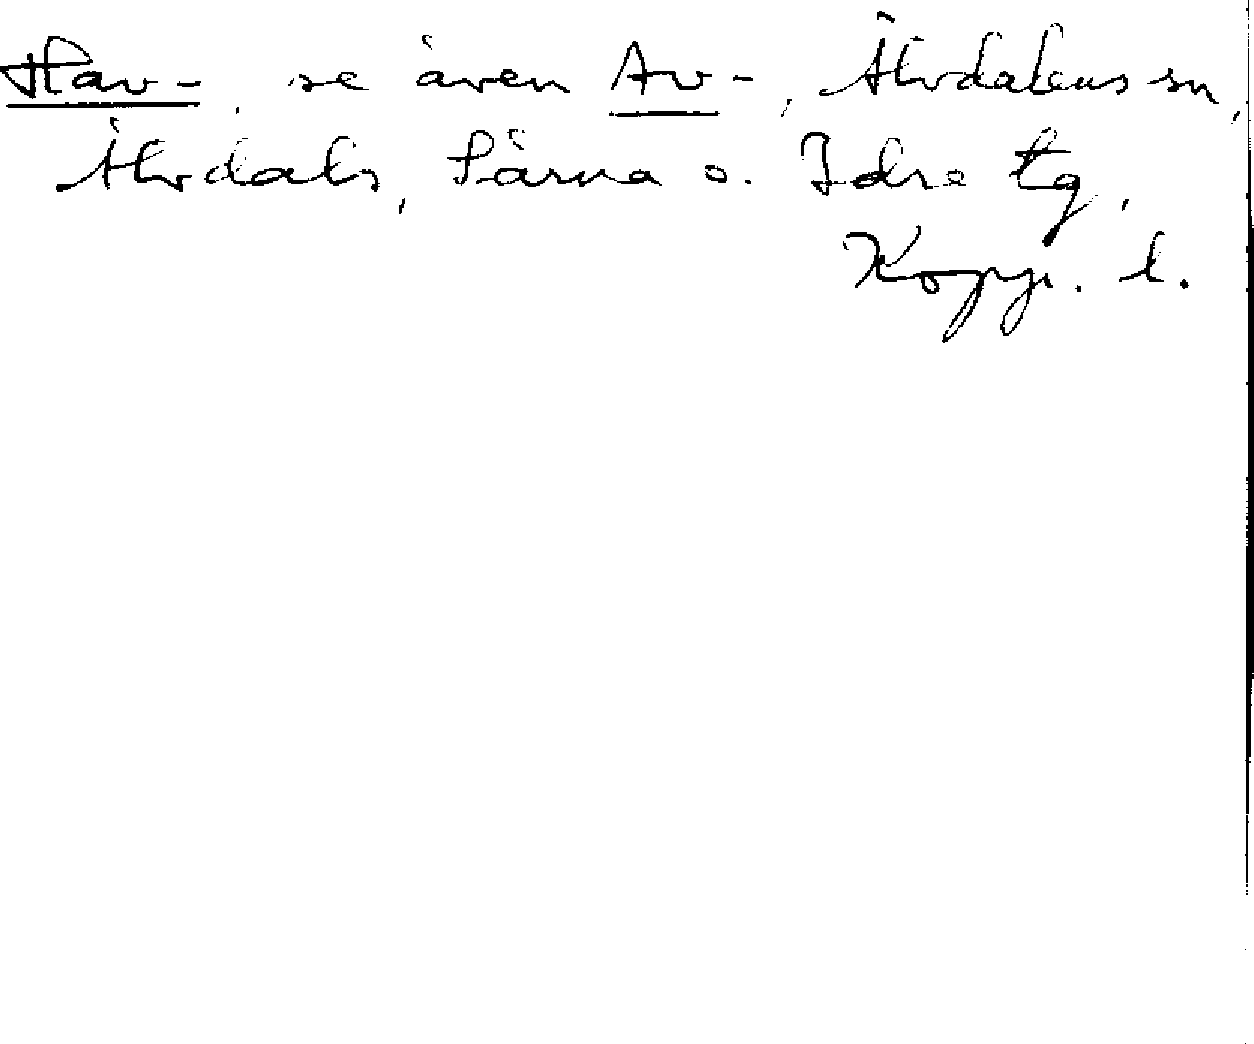 Hav-, se även Av-, Älvdalens sn,
Älvdals, Särna o. Idre tg,
Kopp. l.